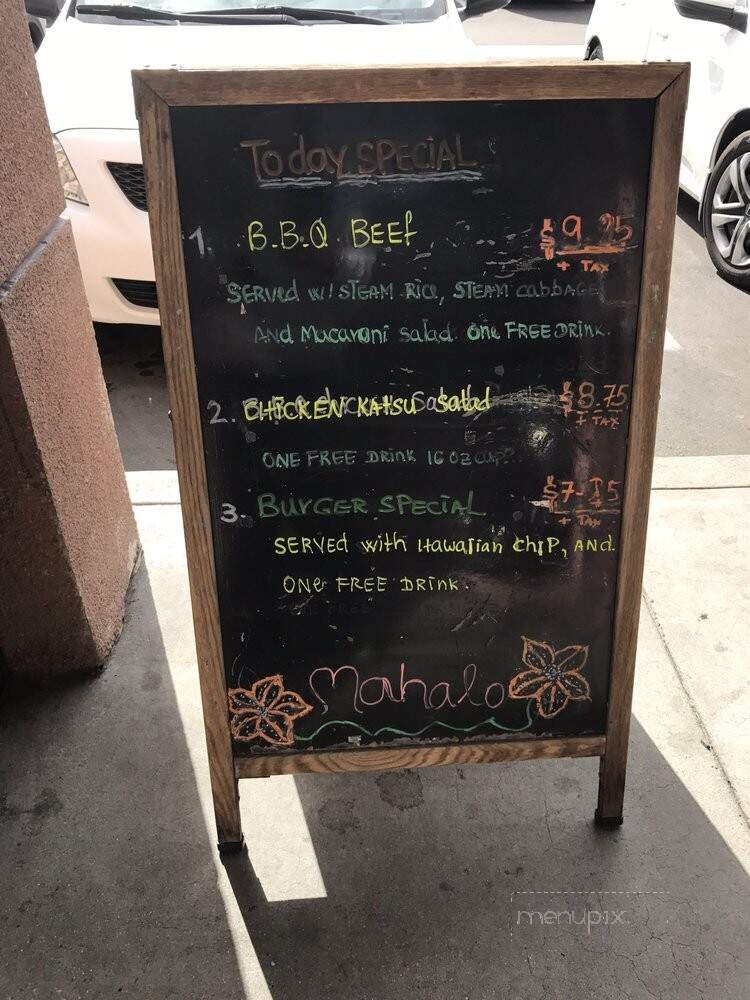 Today SPECIAL
1. B.B.Q. BEEF $9.25 + TAX
SERVED W/ STEAM RICE, STEAM CABBAGE
AND Macaroni Salad. ONE FREE DRINK.
2. CHICKEN KATSU Salad $8.75 + TAX
ONE FREE DRINK 16 OZ CUP.
3. BURGER SPECIAL + TAX
SERVED with Hawaiian CHIP, AND
ONE FREE DRINK.
Mahalo
menupix